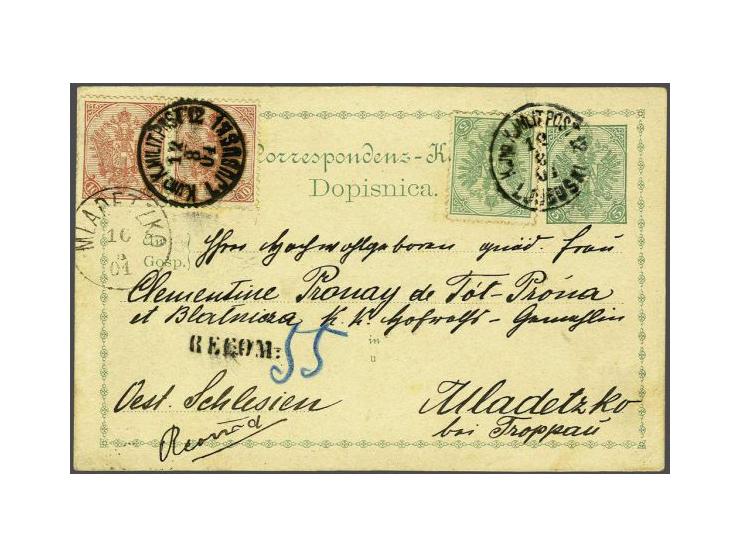 K. und K. MILIT. POST 12
LJUBUŠKI
12 8 01
K. und K. MILIT. POST 12
LJUBUŠKI
12 8 01
Correspondenz-K
Dopisnica.
MLADETZKO
16 8 01
Gosp.
Ihrer Hochwohlgeboren gnäd. Frau
Clementine Pronay de Tót-Próna
et Blatnicza K. K. Hofraths-Gemahlin
in
RECOM: 55
u
Oest. Schlesien Mladetzko
bei Troppau